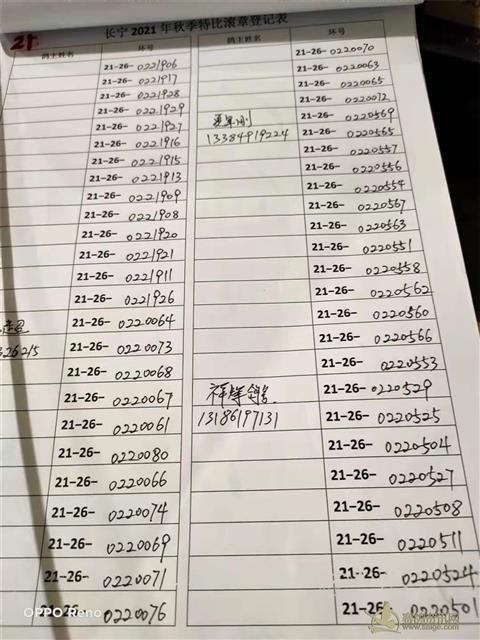 21
长宁2021年秋季特比滚章登记表
鸽主姓名 环号 鸽主姓名 环号
21-26-0221906
21-26-0221917
21-26-0221928
21-26-0221929
21-26-0221927
21-26-0221916
21-26-0221915
21-26-0221913
21-26-0221909
21-26-0221908
21-26-0221920
21-26-0221921
21-26-0221911
21-26-0221926
21-26-0220064
326215 21-26-0220073
21-26-0220068
21-26-0220067
21-26-0220061
21-26-0220080
21-26-0220066
21-26-0220074
21-26-0220069
21-26-0220071
21-26-0220076
21-26-0220070
21-26-0220063
21-26-0220065
21-26-0220072
21-26-0220569
13384919224 21-26-0220565
21-26-0220557
21-26-0220556
21-26-0220554
21-26-0220567
21-26-0220563
21-26-0220551
21-26-0220558
21-26-0220562
21-26-0220560
21-26-0220566
21-26-0220553
祥辉鸽 21-26-0220529
13186197131 21-26-0220525
21-26-0220504
21-26-0220527
21-26-0220508
21-26-0220511
21-26-0220524
21-26-0220501
OPPO Reno